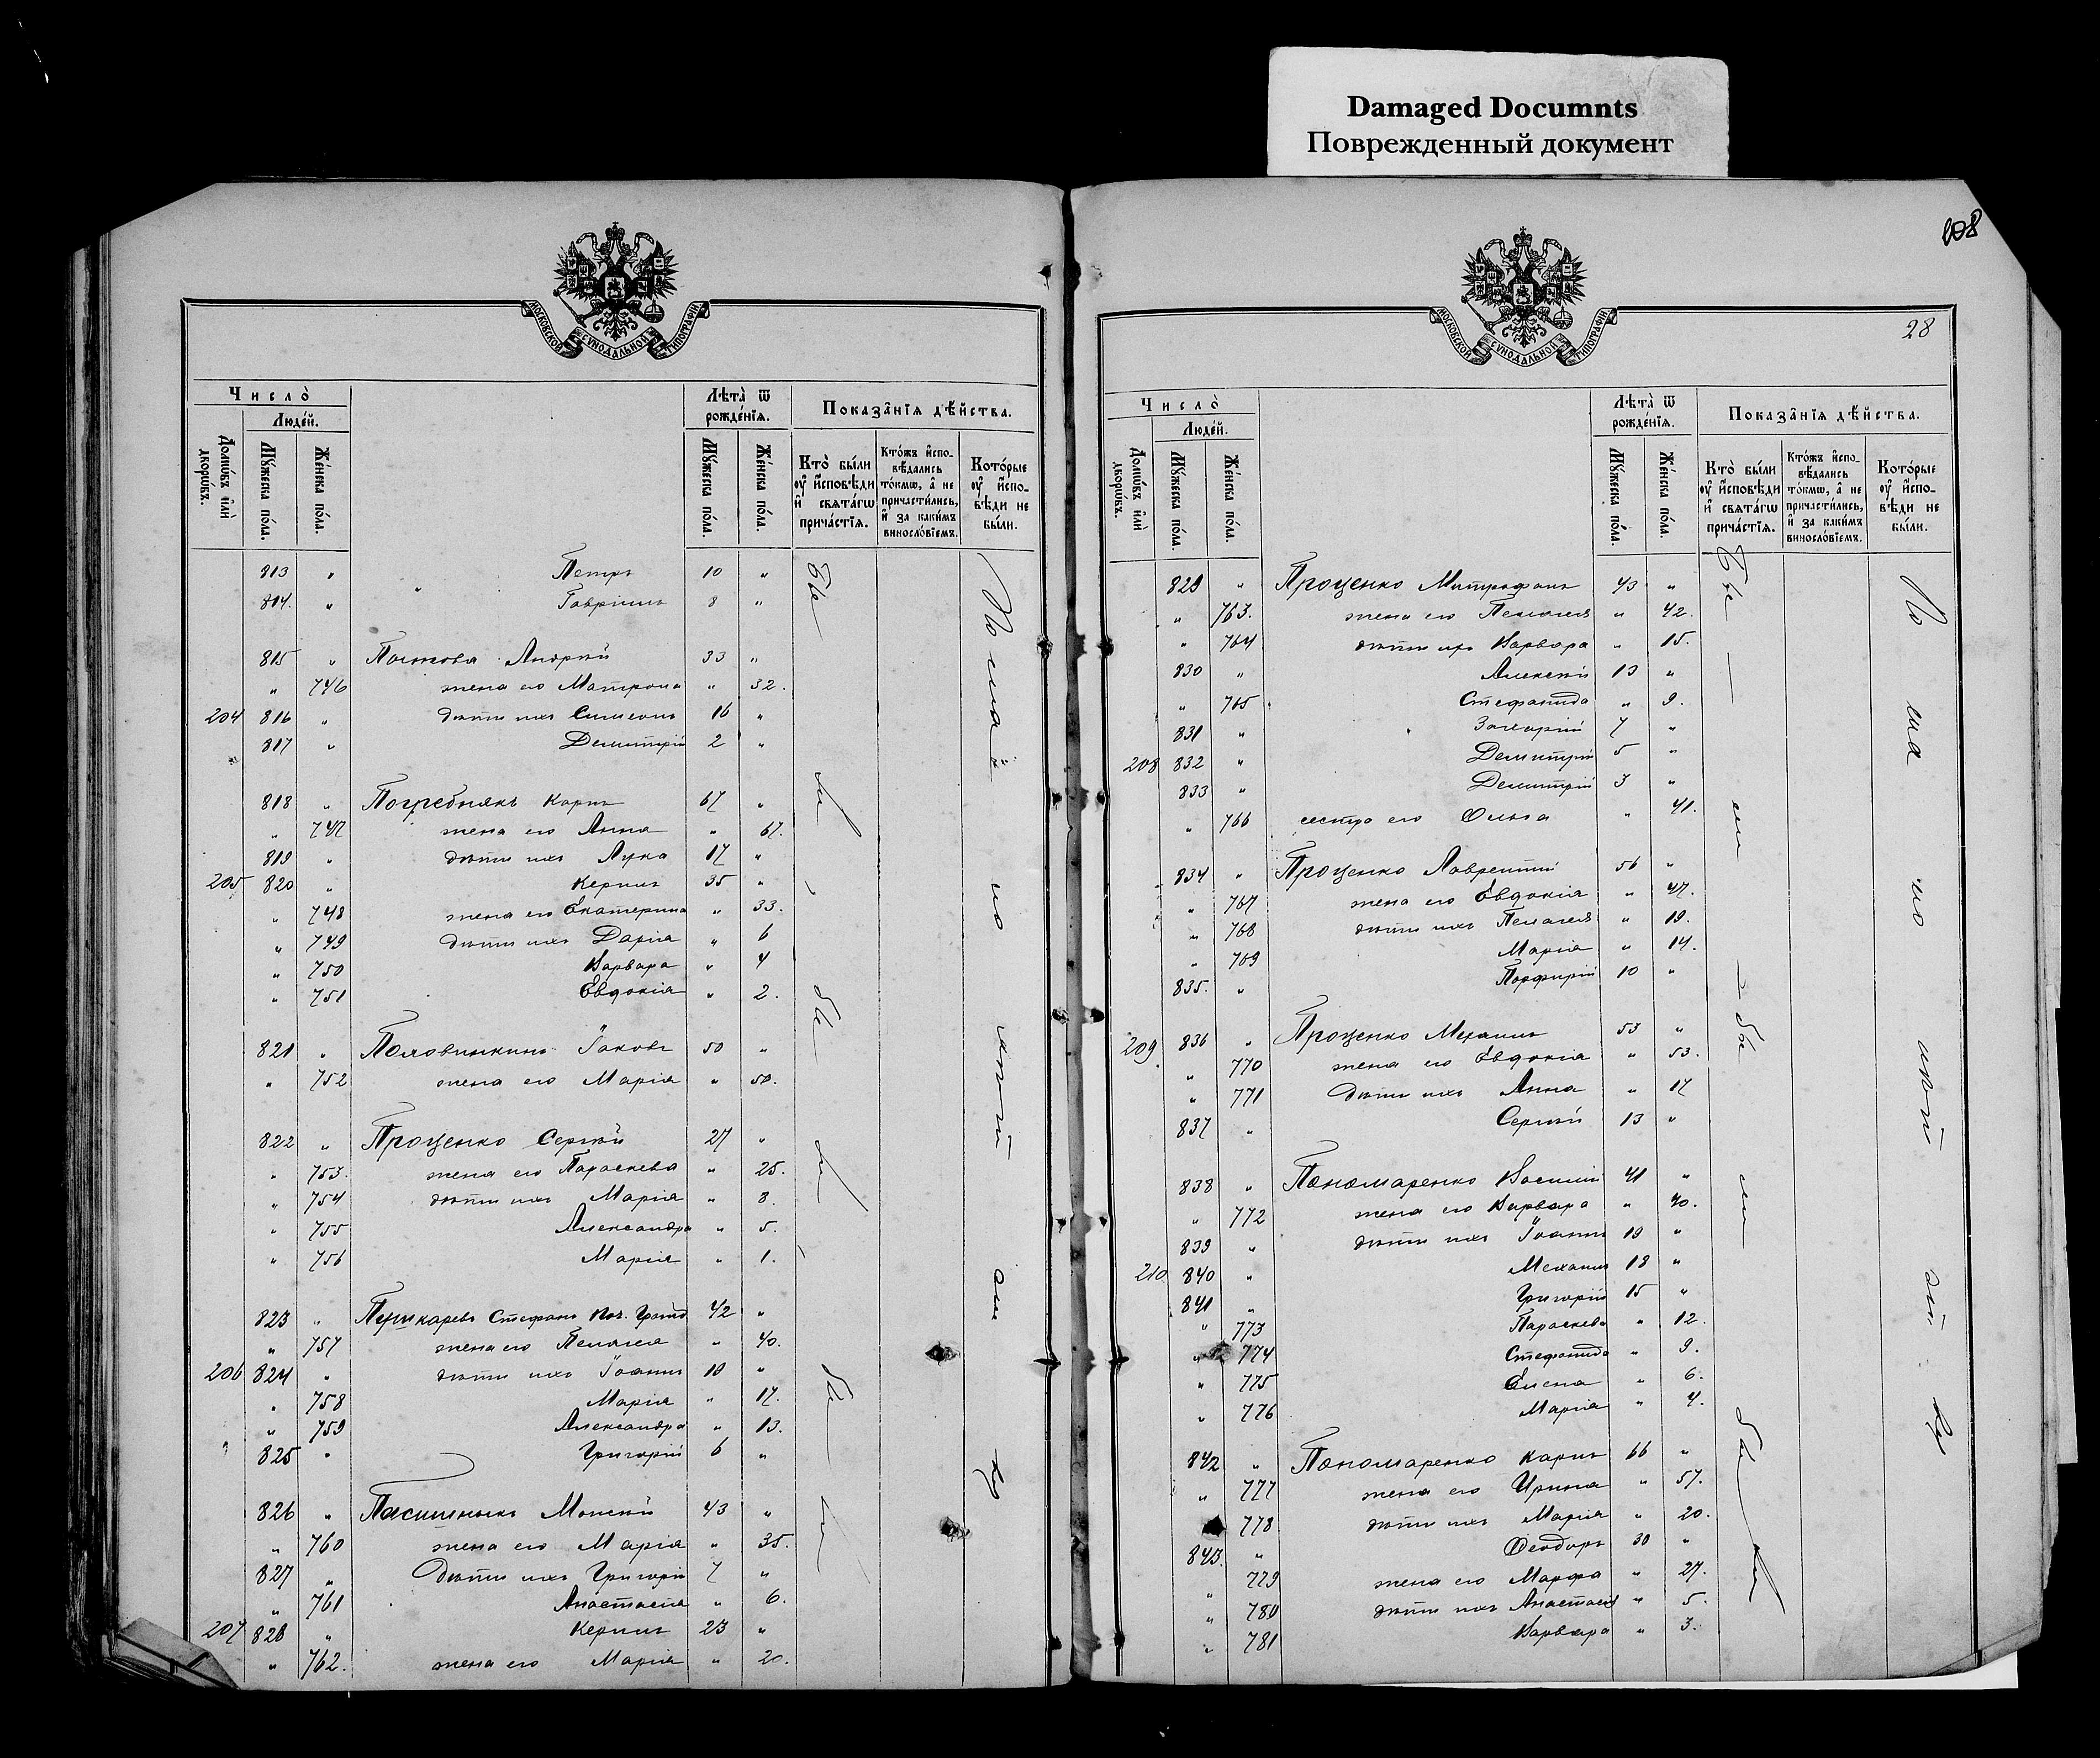 Damaged Documnts
Поврежденный документ
МОСКОВСКОЙ СѴНОДАЛЬНОЙ ТИПОГРАФІИ
Число̀
Людей.
Домѡвъ илѝ дворѡвъ.
Мꙋжеска пола.
Женска пола.
Лѣта̀ ѿ рожденїѧ.
Мꙋжеска пола.
Женска пола.
Показанїѧ дѣйства.
Кто̀ были оу҆ исповѣди и҆ свѧтагѡ причастїѧ.
Ктожъ исповѣдались токмѡ, а҆ не причастились, и҆ за какимъ винословїемъ.
Которые оу҆ исповѣди не были.
813 " " Петръ 10 "
814. " Гавріилъ 8 "
815 " Андрей 33 "
" 746 жена его Матрона " 32.
204 816 " дѣти ихъ Симеонъ 16 "
817 " Димитрій 2 "
818 " Погребнякъ Карпъ 67 "
" 747 жена его Анна " 67.
819 " дѣти ихъ Лука 17 "
205 820 " Кериллъ 35 "
" 748 жена его Екатерина " 33.
" 749 дѣти ихъ Дарія " 6
" 750 Варвара " 4
" 751 Евдокія " 2.
821 " Половинкинъ Іаковъ 50 "
" 752 жена его Марія " 50.
822 " Проценко Сергѣй 27 "
" 753. жена его Параскева " 25.
" 754 дѣти ихъ Марія " 8.
" 755 Александра " 5.
" 756 Марія " 1.
823 " Пушкаревъ Стефанъ Поч. Гражд 42 "
" 757 жена его Пелагея " 40.
206 824 " дѣти ихъ Іоаннъ 10 "
" 758 Марія " 17.
" 759 Александра " 13.
825 " Григорій 6 "
826 " Пасишныкъ Моисей 43 "
" 760 жена его Марія " 35.
827 " Дѣти ихъ Григорій 7 "
" 761 Анастасія " 6.
207 828 " Кериллъ 23 "
" 762. жена его Марія " 20.
108
28
МОСКОВСКОЙ СѴНОДАЛЬНОЙ ТИПОГРАФІИ
Число̀
Людей.
Домѡвъ илѝ дворѡвъ.
Мꙋжеска пола.
Женска пола.
Лѣта̀ ѿ рожденїѧ.
Мꙋжеска пола.
Женска пола.
Показанїѧ дѣйства.
Кто̀ были оу҆ исповѣди и҆ свѧтагѡ причастїѧ.
Ктожъ исповѣдались токмѡ, а҆ не причастились, и҆ за какимъ винословїемъ.
Которые оу҆ исповѣди не были.
829 " Проценко Митрофанъ 43 "
" 763. жена его Пелагея " 42.
" 764 дѣти ихъ Варвара " 15.
830 " Алексѣй 13 "
" 765 Стефанида " 9.
831 " Захарій 7 "
208 832 " Димитрій 5 "
833 " Димитрій 3 "
" 766 сестра его Ольга " 41.
834 " Проценко Лаврентій 56 "
" 767 жена его Евдокія " 47.
" 768 дѣти ихъ Пелагея " 19.
" 769 Марія " 14.
835. " Порфирій 10 "
209 836 " Проценко Механлъ 53 "
" 770 жена его Евдокія " 53.
" 771 Дѣти ихъ Анна " 17
837 " Сергѣй 13 "
838 " Пономаренко Василій 41 "
" 772 жена его Варвара " 40.
839 " дѣти ихъ Іоаннъ 19 "
210 840 " Механлъ 18 "
841 " Григорій 15 "
" 773 Параскева " 12.
" 774 Стефанида " 9.
" 775 Елена " 6.
" 776 Марія " 4.
842 " Пономаренко Карпъ 66 "
" 777 жена его Ирина " 57.
778 дѣти ихъ Марія " 20.
843. " Ѳеодоръ 30 "
" 779 жена его Марфа " 27.
" 780 дѣти ихъ Анастасія " 5.
" 781 Варвара " 3.